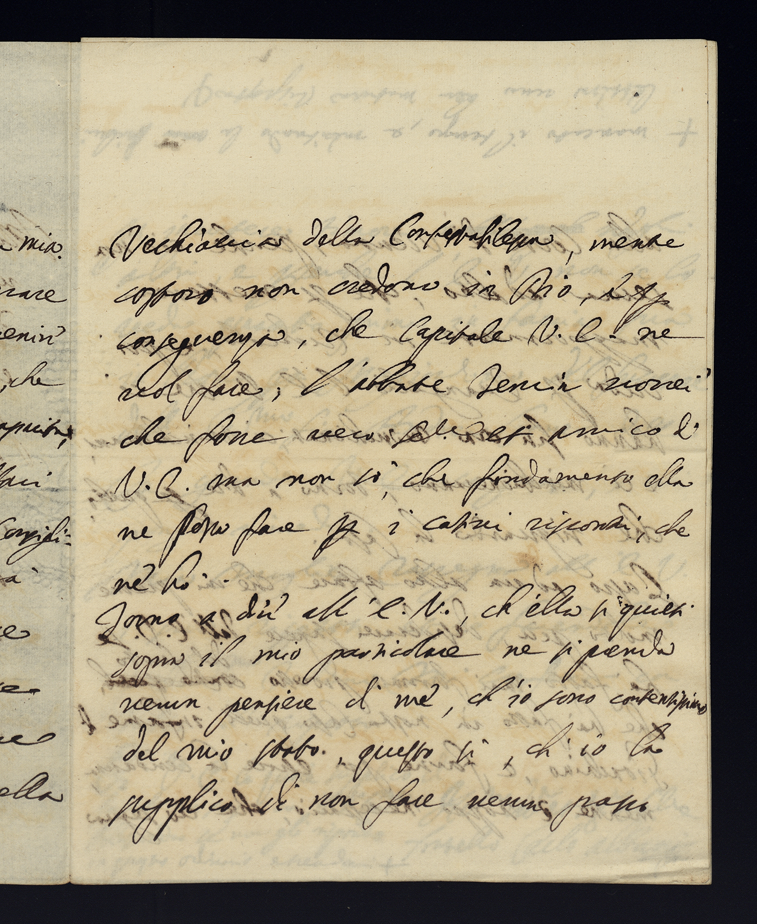 Vechiaccia della Contestabilessa, mentre
costoro non credono in Dio, e p
conseguenza, che Capitale V. E. ne
vuol fare; l'abbate vorrei
che fosse vero amico di
V. E. ma non sò, che fondamento ella
ne possa fare p i cattivi riscontri, che
ne hò.
Torno a dir all'E. V., ch'ella si quieti
sopra il mio particolare ne si prenda
verun pensiere di me, ch'io sono contentissimo
del mio stato, questo si, ch'io la
supplico di non fare verun passo
mia
che
ella